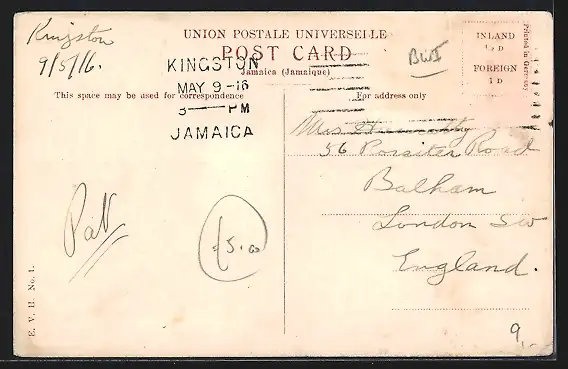 Kingston
9/5/16.
UNION POSTALE UNIVERSELLE
POST CARD
Jamaica (Jamaique)
KINGSTON
MAY 9-16
3 PM
JAMAICA
BWI
INLAND
½ D
FOREIGN
1 D
Printed in Germany
This space may be used for correspondence
For address only
Mrs
56 Rossiter Road
Balham
London SW
England.
Pat
£5.00
E. V. H. No. 1.
9,-